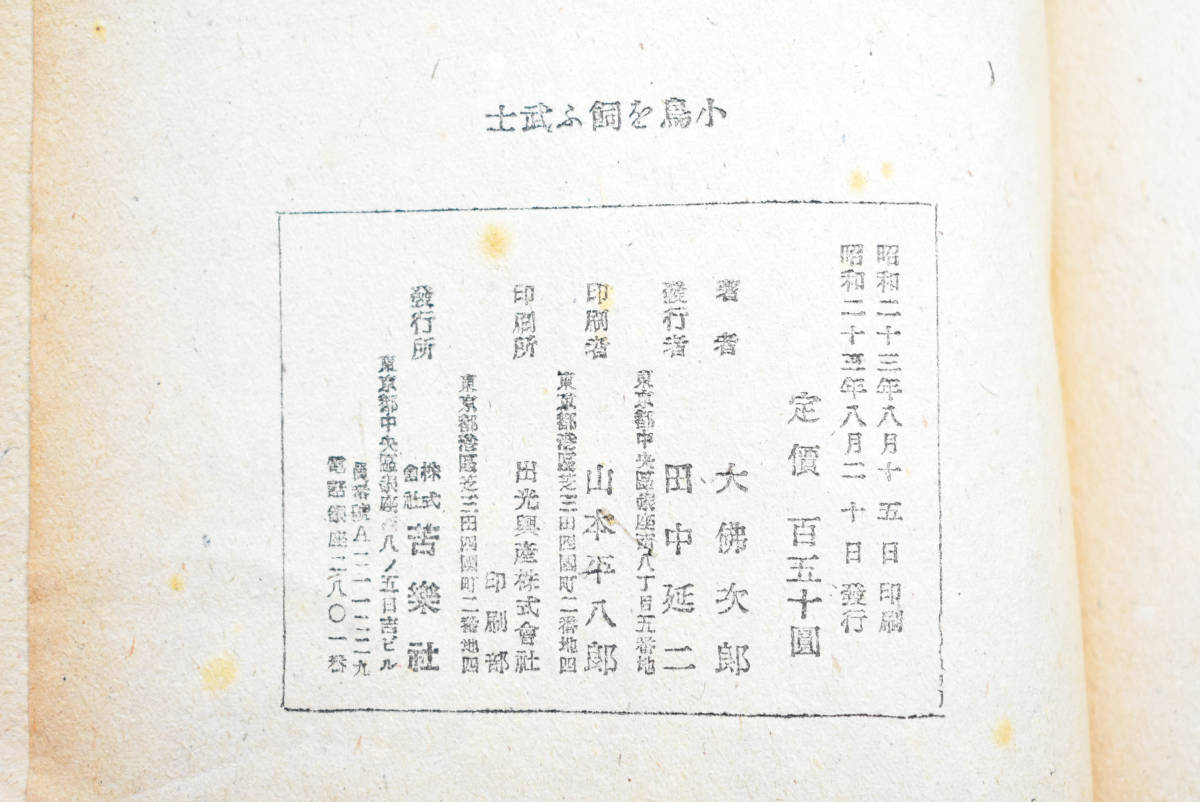 小鳥を飼ふ武士
昭和二十三年八月十五日印刷
昭和二十三年八月二十日發行
定價 百五十圓
著者 大佛次郎
發行者 田中延二
東京都中央區銀座西八丁目五番地
印刷者 山本平八郎
東京都港區芝三田四國町二番地四
印刷所 出光興產株式會社
印刷部
東京都港區芝三田四國町二番地四
發行所 株式會社 苦樂社
東京都中央區銀座西八ノ五日吉ビル
電話銀座二八〇一番